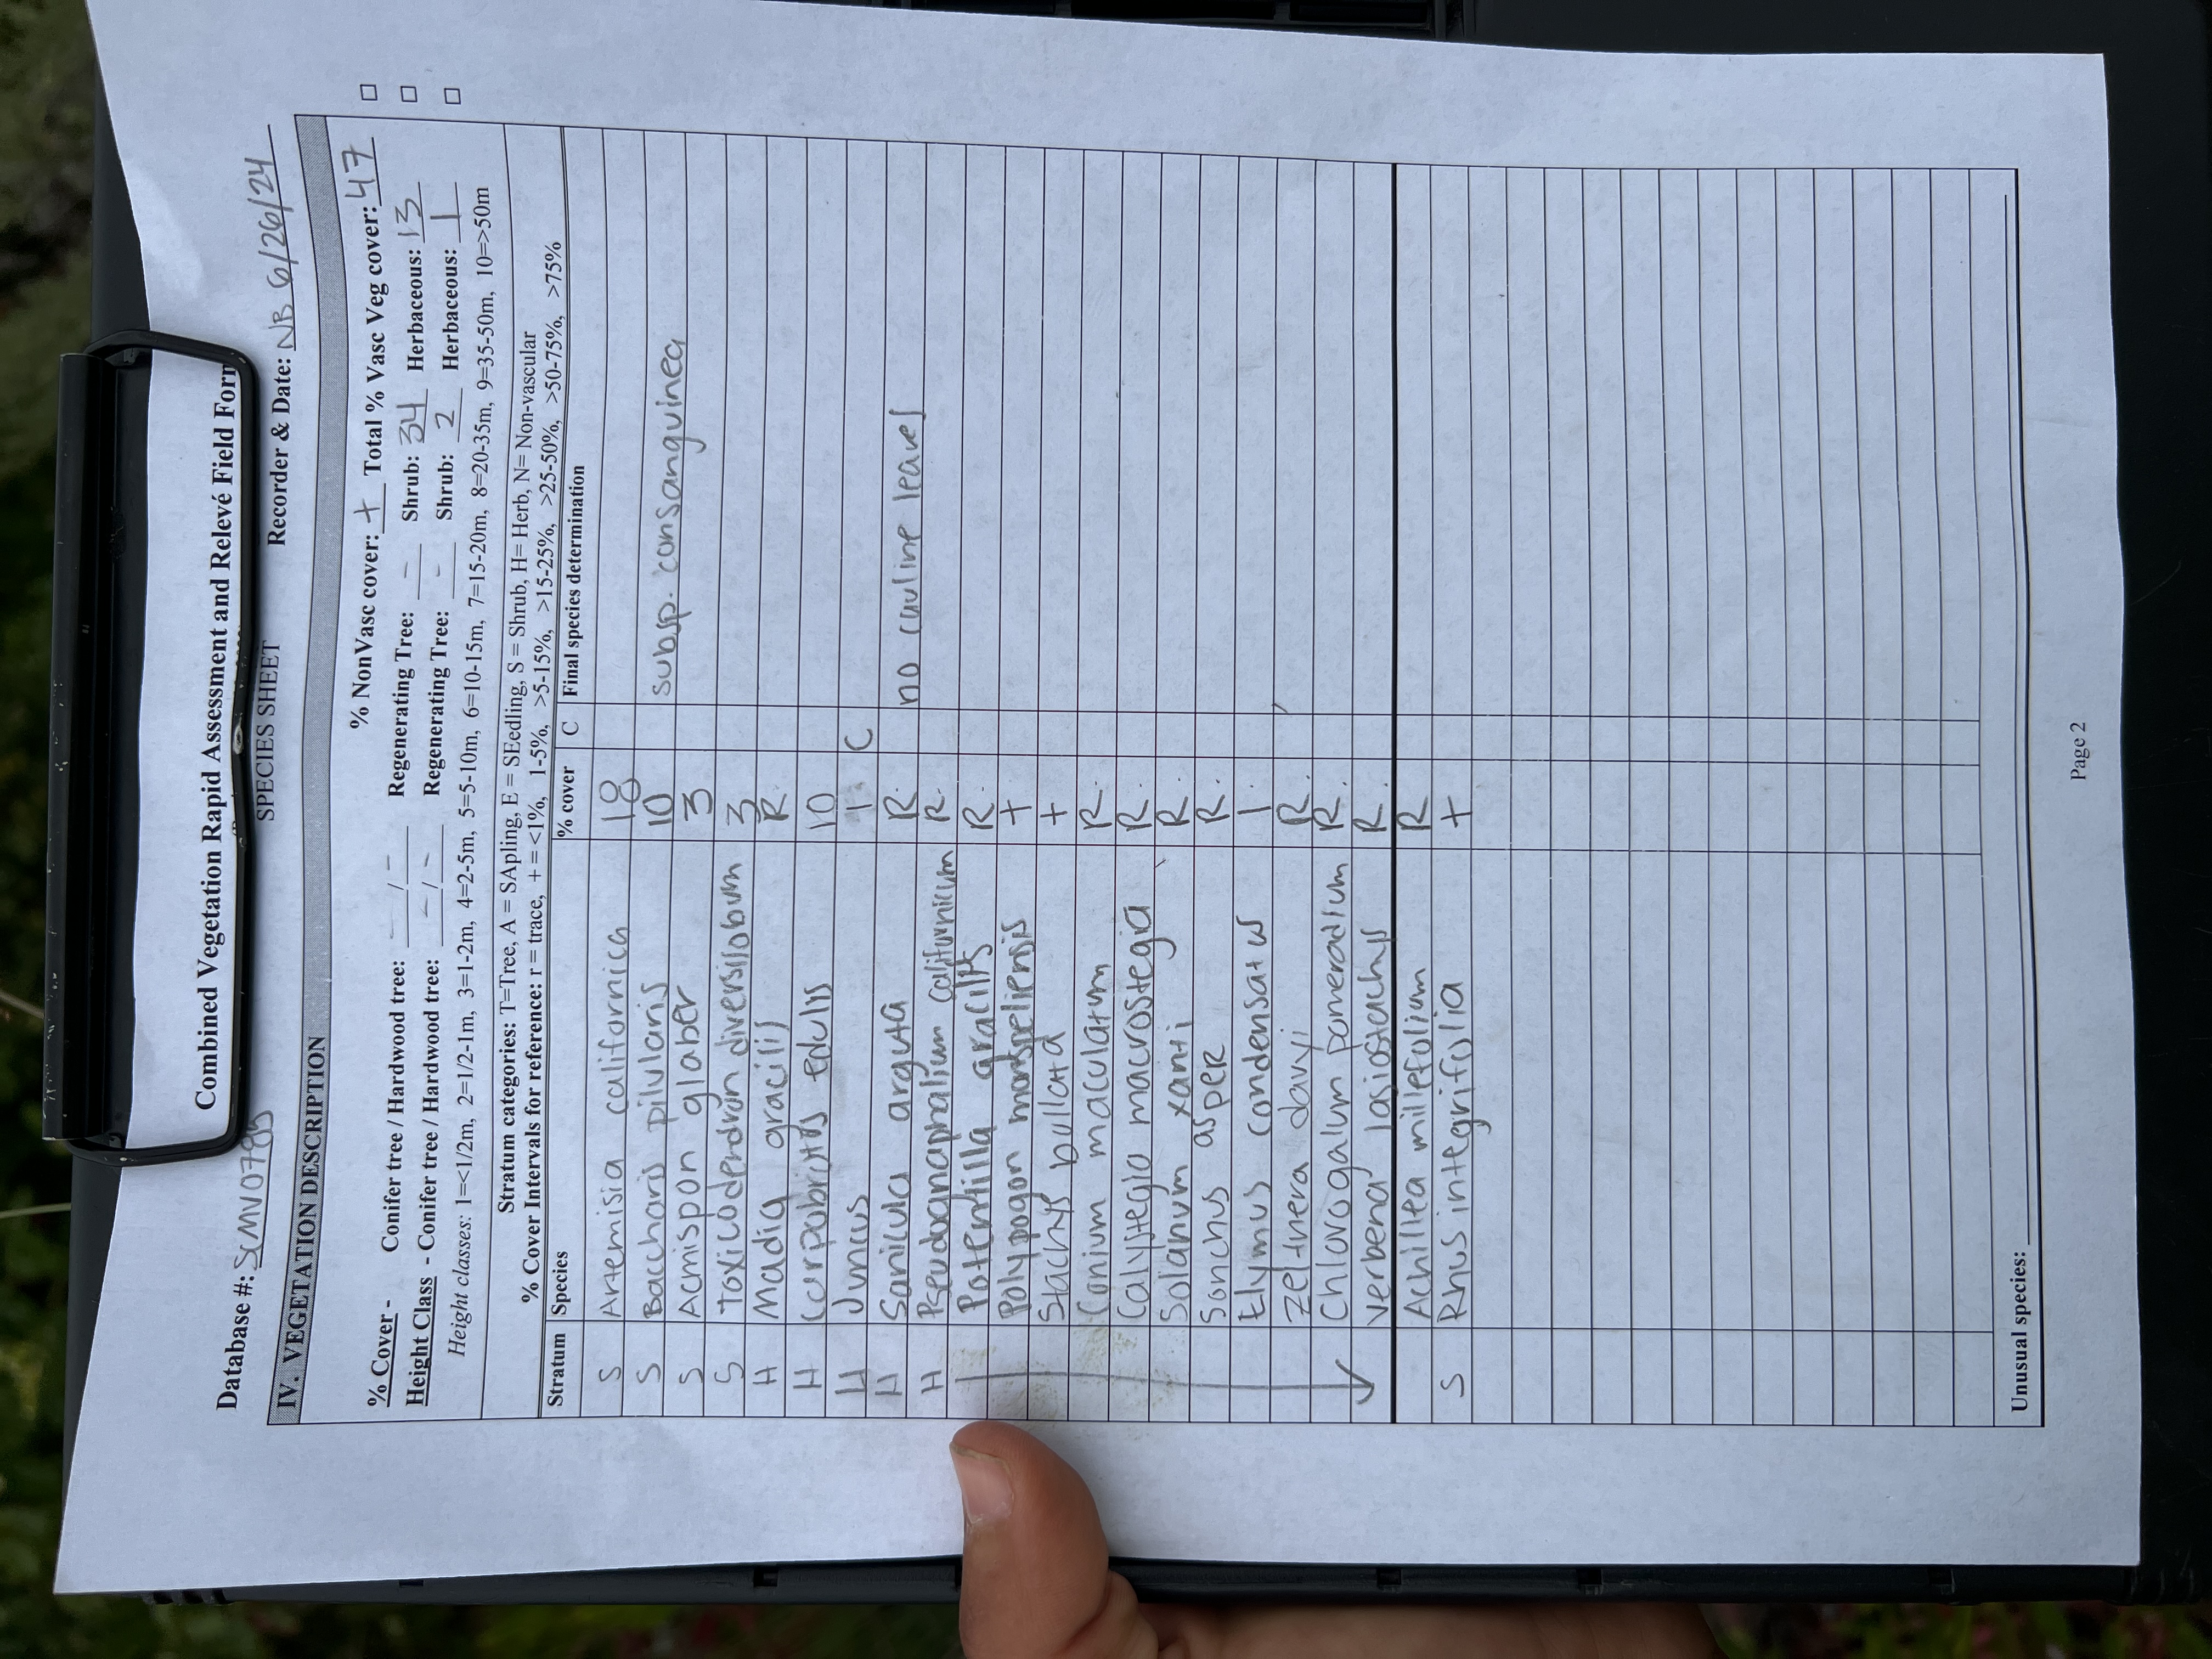 Combined Vegetation Rapid Assessment and Relevé Field Form
SPECIES SHEET
Database #: SCMV0785 Recorder & Date: NB 6/26/24
IV. VEGETATION DESCRIPTION
% NonVasc cover: + Total % Vasc Veg cover: 47
% Cover - Conifer tree / Hardwood tree: - / - Regenerating Tree: - Shrub: 34 Herbaceous: 13
Height Class - Conifer tree / Hardwood tree: - / - Regenerating Tree: - Shrub: 2 Herbaceous: 1
Height classes: 1=<1/2m, 2=1/2-1m, 3=1-2m, 4=2-5m, 5=5-10m, 6=10-15m, 7=15-20m, 8=20-35m, 9=35-50m, 10=>50m
Stratum categories: T=Tree, A = SApling, E = SEedling, S = Shrub, H= Herb, N= Non-vascular
% Cover Intervals for reference: r = trace, + = <1%, 1-5%, >5-15%, >15-25%, >25-50%, >50-75%, >75%
Stratum Species % cover C Final species determination
S Artemisia californica 18
S Baccharis pilularis 10 subsp. consanguinea
S Acmispon glaber 3
S toxicodendron diversilobum 3
H Madia gracilis R
H Carpobrotus edulis 10
H Juncus 1 C
H Sanicula arguta R no cauline leaves
H Pseudognaphalium californicum R
Potentilla gracilis R
Polypogon monspeliensis +
Stachys bullata +
Conium maculatum R
Calystegia macrostegia R
Solanum xanti R
Sonchus asper R
Elymus condensatus 1
Zeltnera davyi R
Chlorogalum pomeradium R
Verbena lasiostachys R
Achillea millefolium R
S Rhus integrifolia +
Unusual species:
Page 2